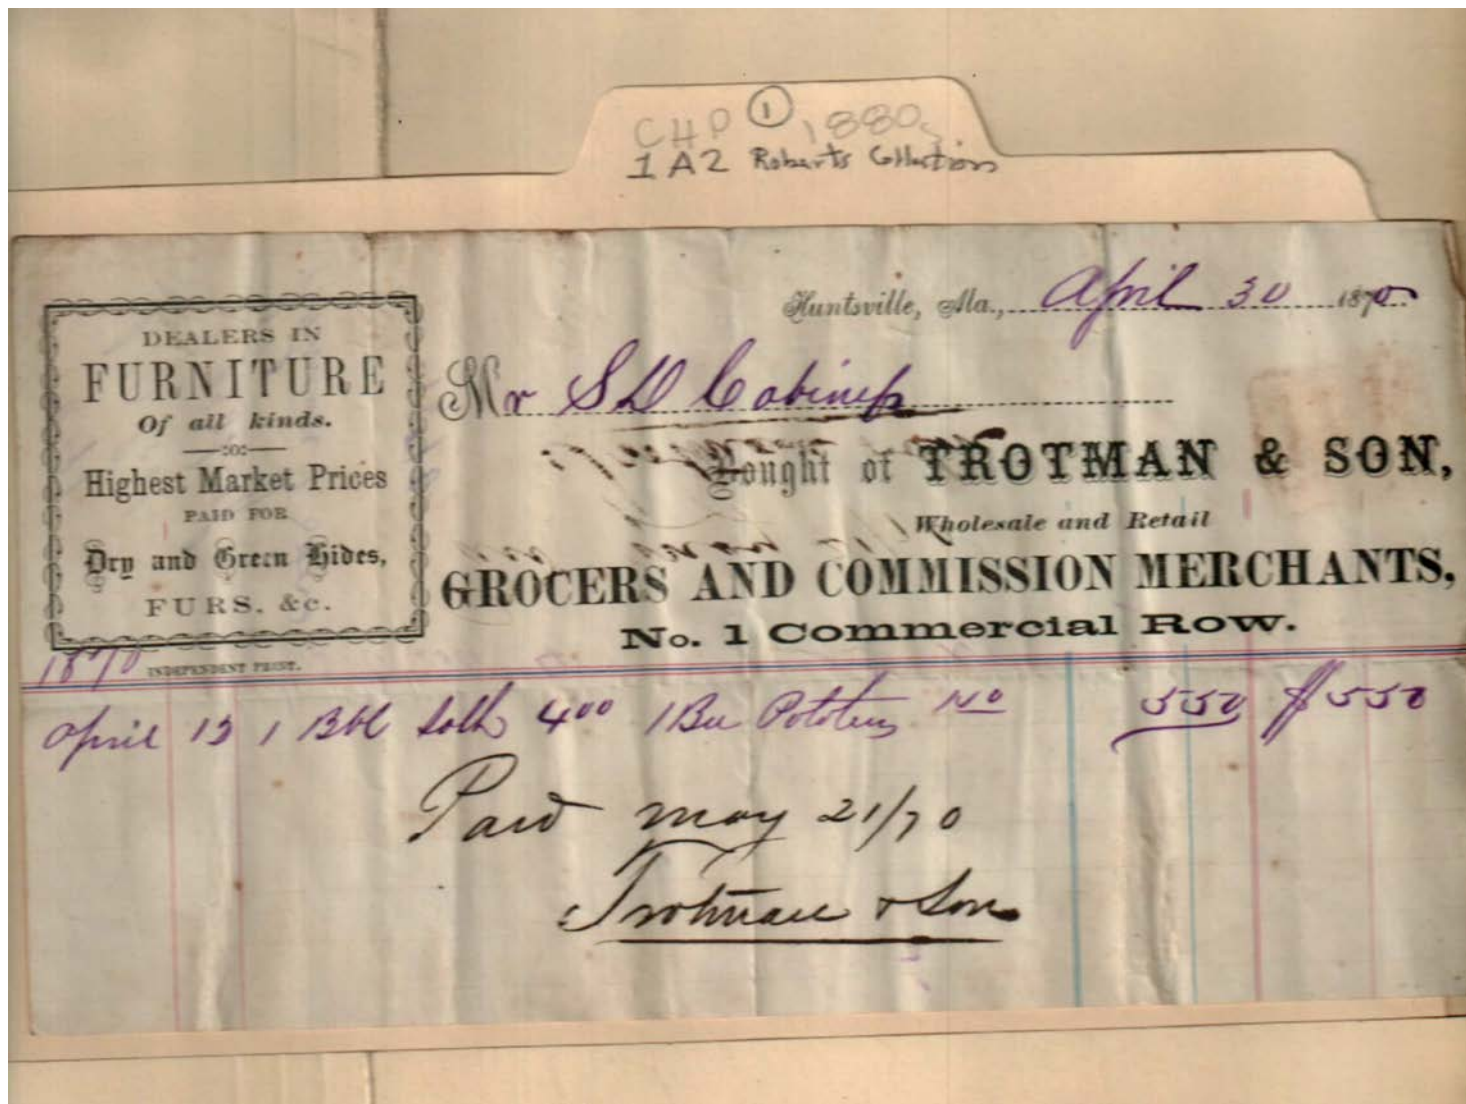 CHP 1 1880s
1A2 Roberts Collection
Huntsville, Ala., April 30 1870
DEALERS IN
FURNITURE
Of all kinds.
:o:
Highest Market Prices
PAID FOR
Dry and Green Hides,
FURS, &c.
INDEPENDENT PRINT.
Mr S D Cabiness
Bought of TROTMAN & SON,
Wholesale and Retail
GROCERS AND COMMISSION MERCHANTS,
No. 1 Commercial Row.
1870
April 13 1 Bbl Salt 400 1 Bu Potatoes 550 $550
Paid may 21/70
Trotman & Son